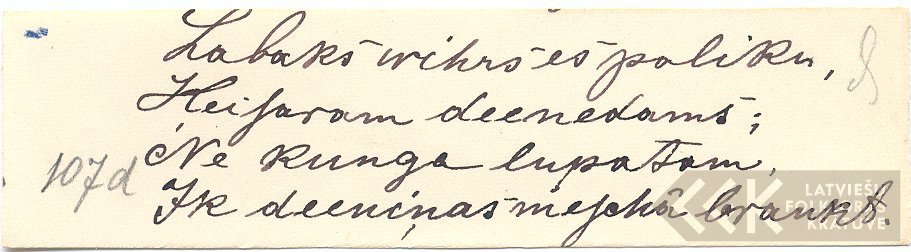 Labakš wihrs es paliku,
Keisaram deenedams;
Ne kunga lupatam,
107d
Ik deeniņas mejchâ braukt.
LATVIEŠU
FOLKLORAS
KRĀTUVE